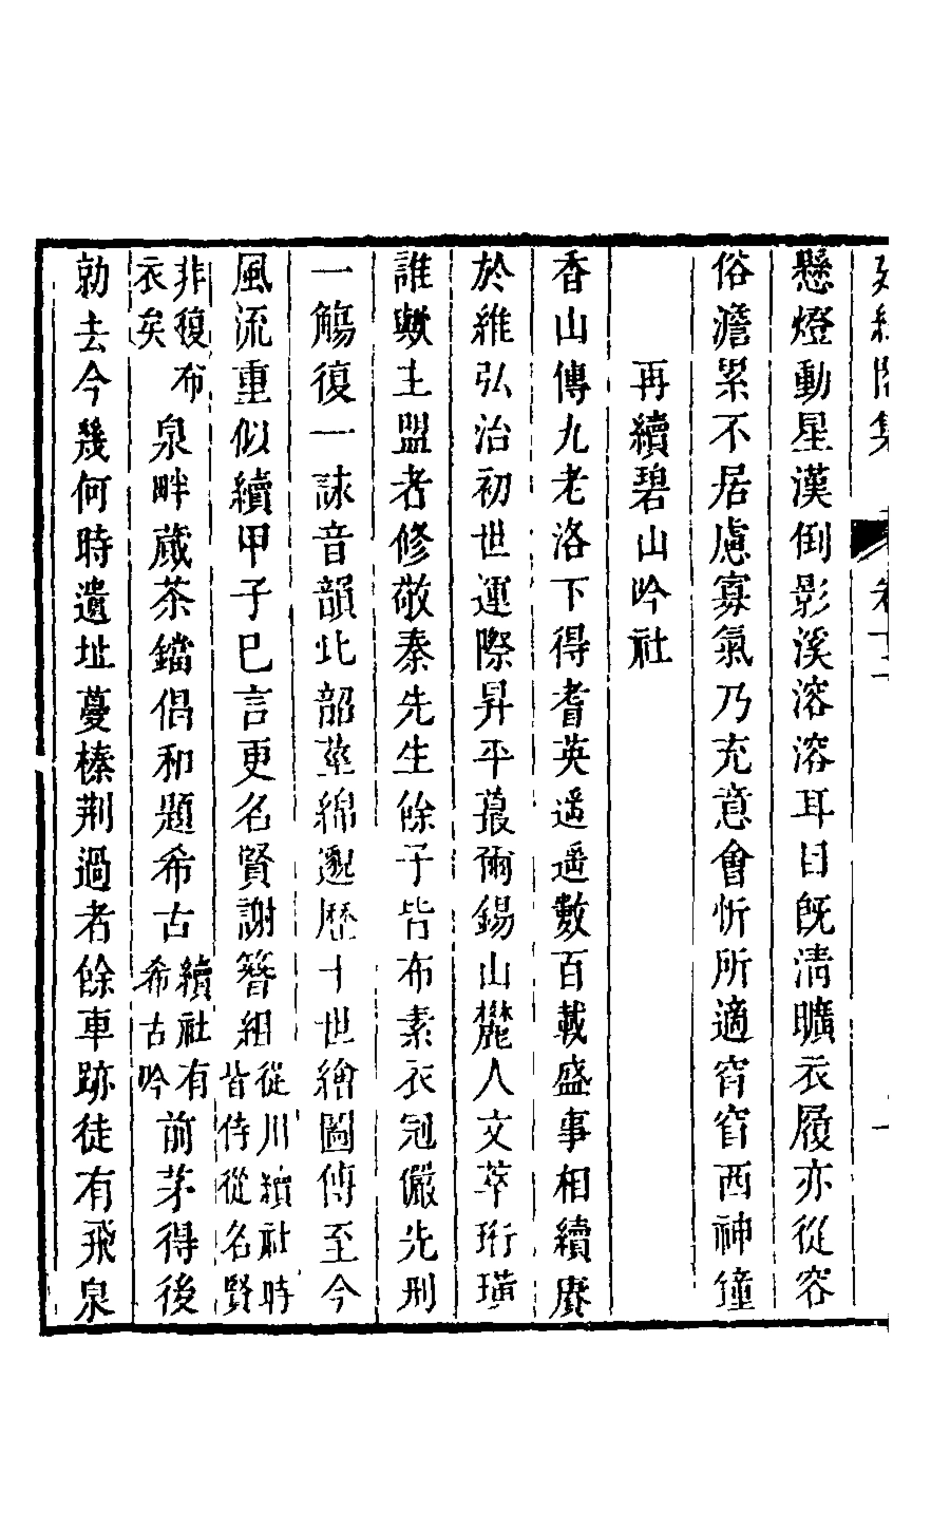 懸燈動星漢倒影溪溶溶耳目旣淸曠衣履亦從容
俗澹累不居慮寡氣乃充意會忻所適窅窅西神鐘
再續碧山吟社
香山傳九老洛下得耆英遥遥數百載盛事相續賡
於維弘治初世運際昇平蕞爾錫山麓人文萃珩璜
誰歟主盟者修敬秦先生餘子皆布素衣冠儼先刑
一觴復一詠音韻比韶莖綿邈歷十世繪圖傳至今
風流重似續甲子已言更名賢謝簪組從川續社時皆侍從名賢
非復布衣矣泉畔蔵茶鐺倡和題希古續社有希古吟前茅得後
勍去今幾何時遺址蔓榛荆過者餘車跡徒有飛泉